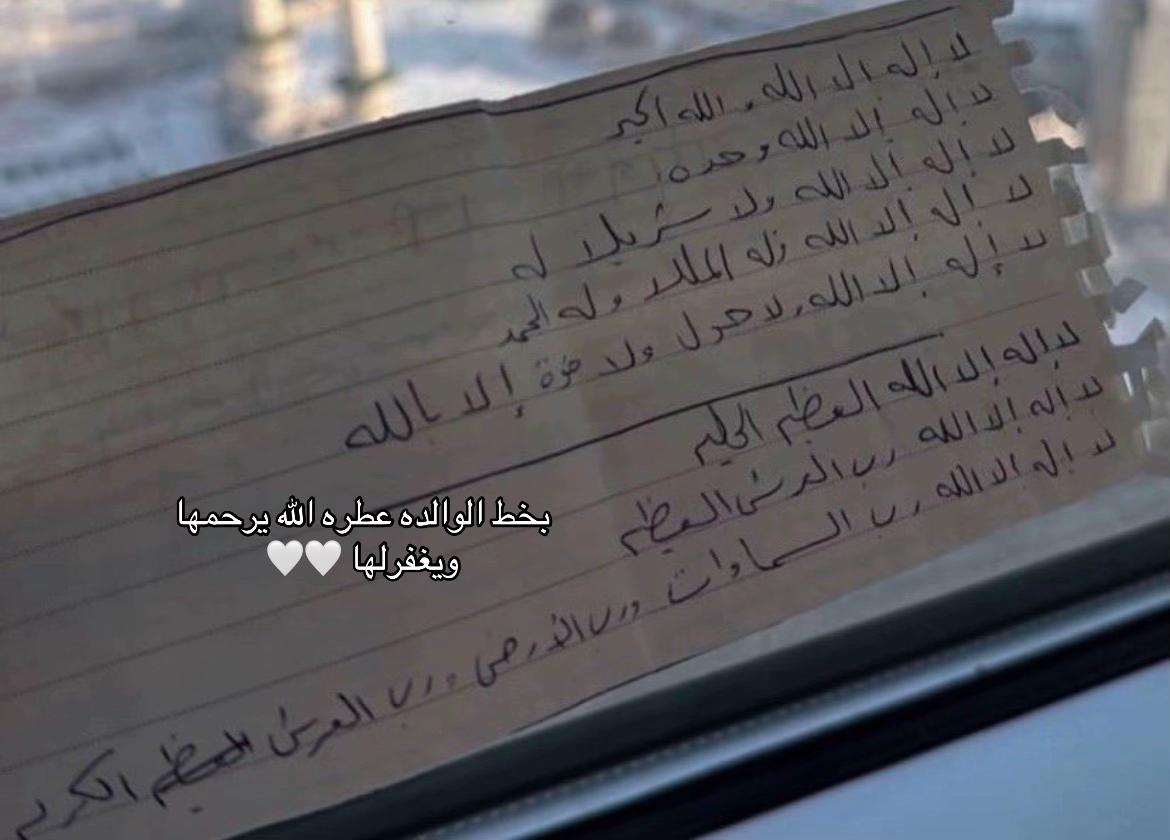 لا إله الا الله والله اكبر
لا إله إلا الله وحده
لا إله إلا الله ولا شريك له
لا إله إلا الله له الملك وله الحمد
لا إله إلا الله ولا حول ولا قوة إلا بالله
لا إله إلا الله العظيم الحليم
لا إله إلا الله رب العرش العظيم
لا إله الا الله رب السماوات ورب الأرض ورب العرش العظيم الكريم
بخط الوالده عطره الله يرحمها
ويغفرلها 🤍🤍